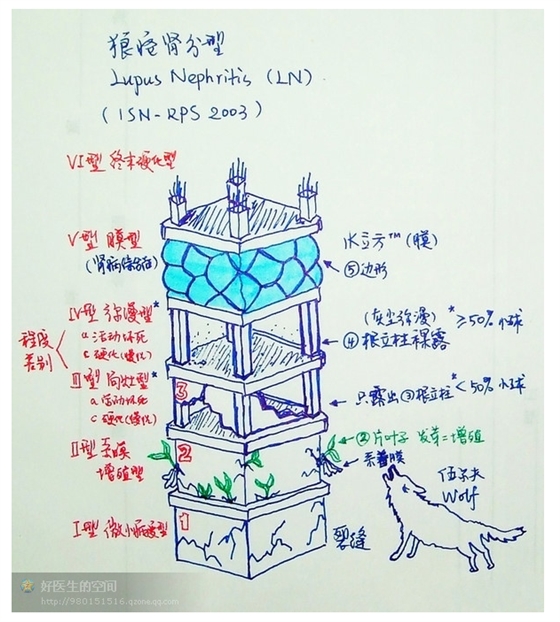 狼疮肾分型
Lupus Nephritis (LN)
(ISN-RPS 2003)
VI型 终末硬化型
V型 膜型
(肾病综合征)
水立方™(膜)
⑤边形
IV型 弥漫型*
a 活动坏死
c 硬化(慢化)
(灰尘弥漫)* ≥50%小球
④根立柱裸露
程度
差别
III型 局灶型*
a 活动坏死
c 硬化(慢化)
3
只露出③根立柱* <50%小球
II型 系膜
增殖型
2
②片叶子 发芽=增殖
系着膜
I型 微小病变型
1
裂缝
Wolf
好医生的空间
http://980151516.qzone.qq.com